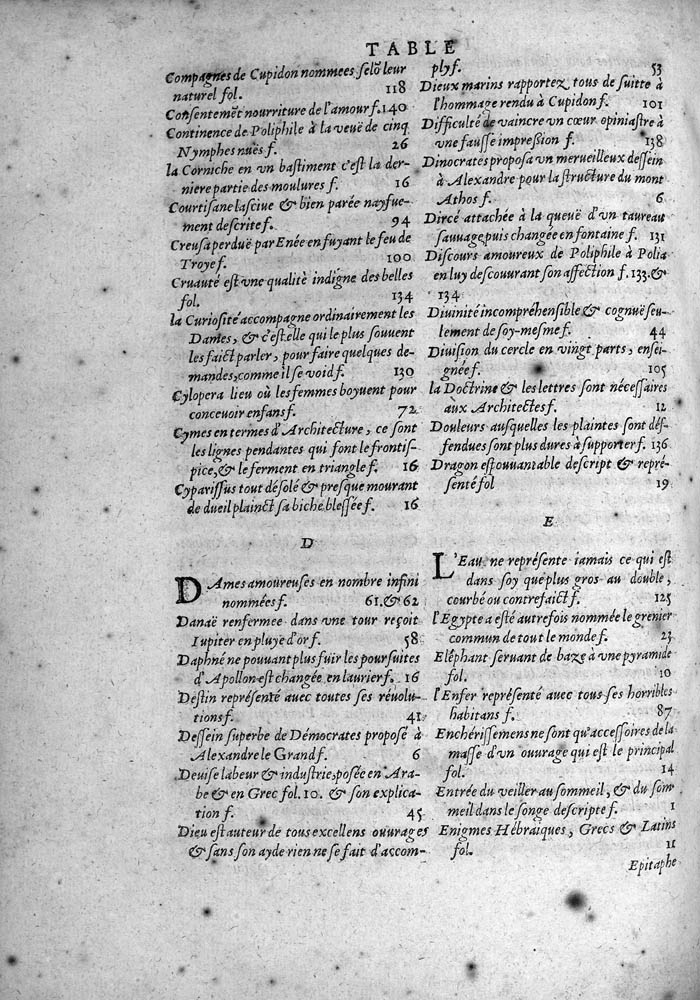 TABLE
Compagnes de Cupidon nommees selõ leur
naturel fol. 118
Consentemẽt nourriture de l'amour f. 140
Continence de Poliphile à la veuë de cinq
Nymphes nuës f. 26
la Corniche en vn bastiment c'est la der-
niere partie des moulures f. 16
Courtisane lasciue & bien parée nayfue-
ment descrite f. 94
Creusa perduë par Enée en fuyant le feu de
Troye f. 100
Cruauté est vne qualitè indigne des belles
fol. 134
la Curiosité accompagne ordinairement les
Dames, & c'est elle qui le plus souuent
les faict parler, pour faire quelques de-
mandes, comme il se void f. 130
Cylopera lieu où les femmes boyuent pour
conceuoir enfans f. 72
Cymes en termes d'Architecture, ce sont
les lignes pendantes qui font le frontis-
pice, & le ferment en triangle f. 16
Cyparissus tout désolé & presque mourant
de dueil plainct sa biche blessée f. 16
D
DAmes amoureuses en nombre infini
nommées f. 61. & 62
Danaë renfermee dans vne tour reçoit
Iupiter en pluye d'or f. 58
Daphné ne pouuant plus fuir les poursuites
d'Apollon est changée en laurier f. 16
Destin représenté avec toutes ses réuolu-
tions f. 41
Dessein superbe de Démocrates proposé à
Alexandre le Grand f. 6
Deuise labeur & industrie, posée en Ara-
be & en Grec fol. 10. & son explica-
tion f. 45
Dieu est auteur de tous excellens ouurages
& sans son ayde rien ne se fait d'accom-
ply f. 53
Dieux marins rapportez tous de suitte à
l'hommage rendu à Cupidon f. 101
Difficulté de vaincre vn cœur opiniastre à
vne fausse impression f. 138
Dinocrates proposa vn merueilleux dessein
à Alexandre pour la structure du mont
Athos f. 6
Dircé attachée à la queuë d'vn taureau
sauuage puis changée en fontaine f. 131
Discours amoureux de Poliphile à Polia
en luy descouurant son affection f. 133. &
134
Diuinité incompréhensible & cognuë seu-
lement de soy-mesme f. 44
Diuision du cercle en vingt parts, ensei-
gnée f. 105
la Doctrine & les lettres sont nécessaires
aux Architectes f. 12
Douleurs ausquelles les plaintes sont déf-
fendues sont plus dures à supporter f. 136
Dragon espouuantable descript & repré-
senté fol 19
E
L'Eau ne représente iamais ce qui est
dans soy que plus gros au double,
courbé ou contrefaict f. 125
l'Egypte a esté autrefois nommée le grenier
commun de tout le monde f. 23
Eléphant seruant de baze à vne pyramide
fol. 10
l'Enfer représenté avec tous ses horribles
habitans f. 87
Enchérissemens ne sont qu'accessoires de la
masse d'vn ouurage qui est le principal
fol. 14
Entrée du veiller au sommeil, & du som-
meil dans le songe descripte f. 1
Enigmes Hébraïques, Grecs & Latins
fol. 11
Epitaphe